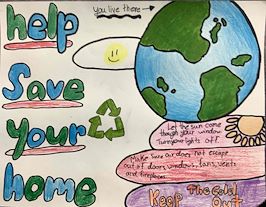 help
you live there
Save
your
home
Let the sun come
though your window
Turn your lights off.
Make sure air does not escape
out of doors, windows, fans, vents
and fireplaces
Keep The Cold
Out